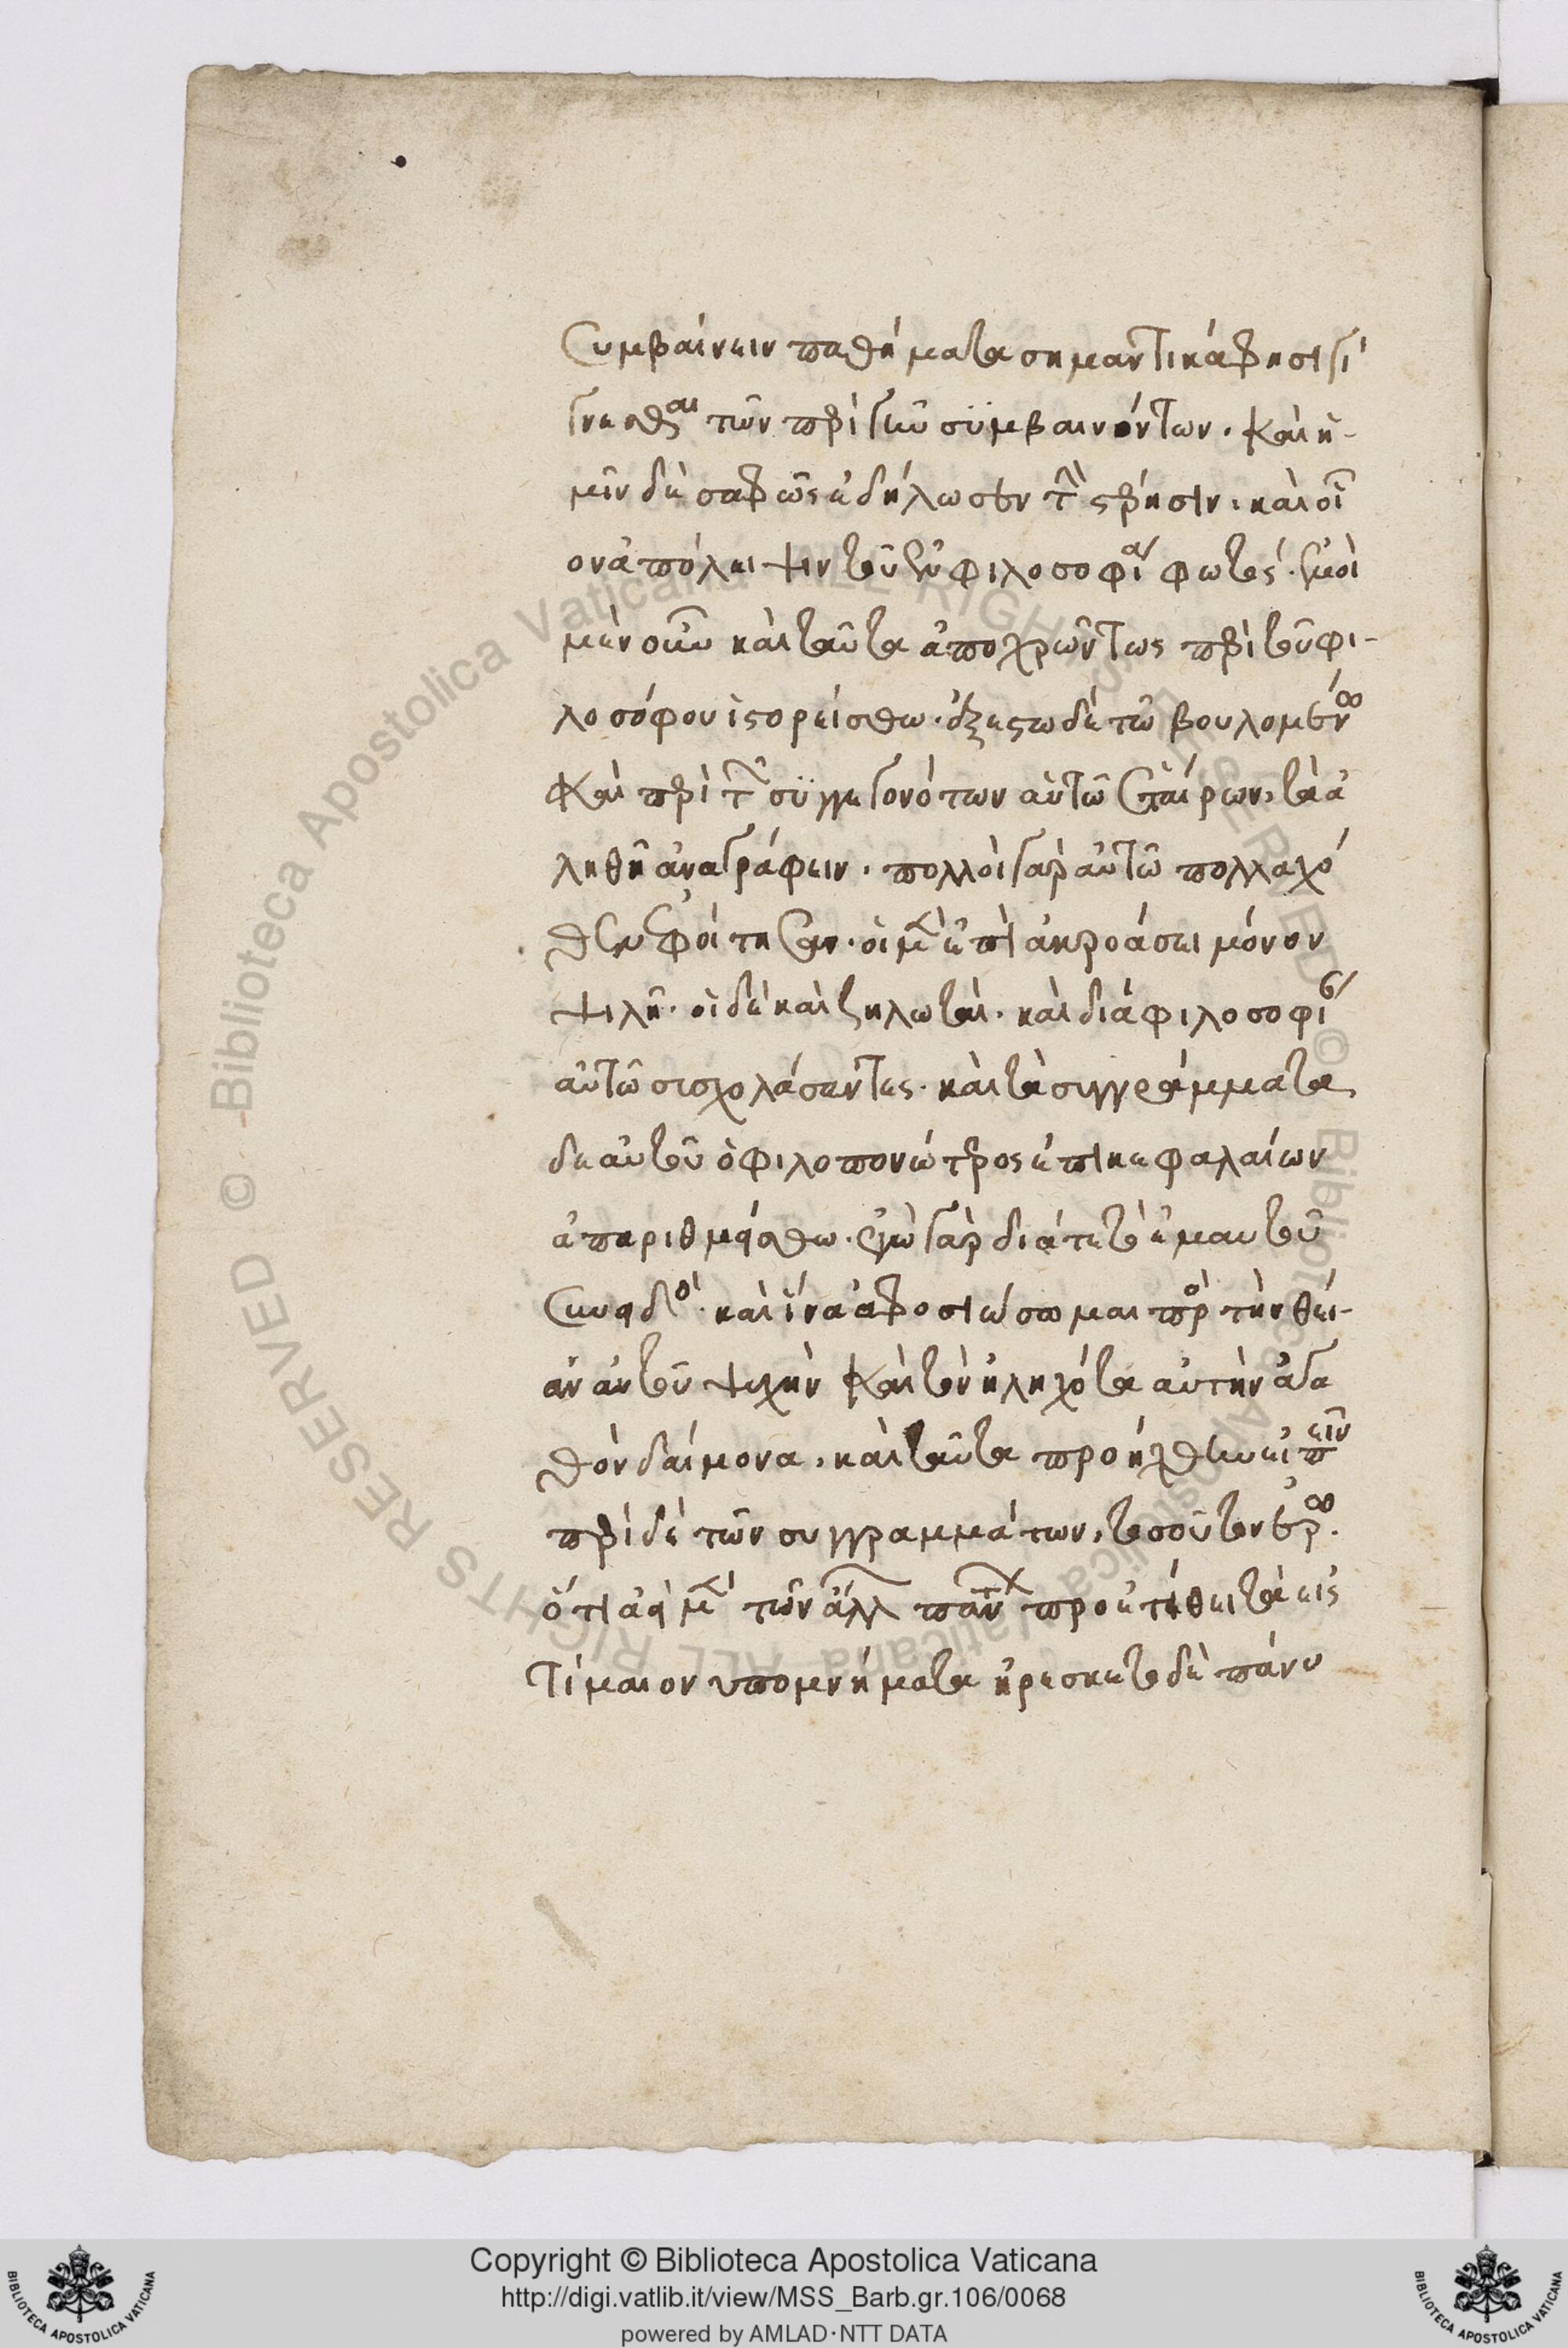 Συμβαίνειν παθήματα σημαντικά φησι γί
γνεσθαι τῶν περὶ γῆν συμβαινόντων. καὶ ἡ-
μῖν δὲ σαφῶς ἐδήλωσεν τὴν στέρησιν. καὶ οἷ
ον ἀπόλειψιν τοῦ ἐν φιλοσοφίᾳ φωτός. ἐμοὶ
μὲν οὖν καὶ ταῦτα ἀποχρώντως περὶ τοῦ φι-
λοσόφου ἱστορείσθω. ἐξέστω δὲ τῷ βουλομένῳ
καὶ περὶ τῶν συγγεγονότων αὐτῷ ἑταίρων, τὰ ἀ
ληθῆ ἀναγράφειν. πολλοὶ γὰρ αὐτῷ πολλαχό
θεν ἐφοίτησαν. οἱ μὲν ἐπὶ ἀκροάσει μόνον
ψιλῇ. οἱ δὲ καὶ ζηλωταὶ. καὶ διὰ φιλοσοφίαν
αὐτῷ συσχολάσαντες. καὶ τὰ συγγράμματα
δὲ αὐτοῦ ὁ φιλοπονώτερος ἐπὶ κεφαλαίων
ἀπαριθμείσθω. ἐγὼ γὰρ διά τε τὸ ἐμαυτοῦ
συνειδὸς. καὶ ἵνα ἀφοσιώσωμαι πρὸς τὴν θεί-
αν αὐτοῦ ψυχὴν καὶ τὸν εἰληχότα αὐτὴν ἀγα
θὸν δαίμονα, καὶ ταῦτα προήχθην εἰπεῖν
περὶ δὲ τῶν συγγραμμάτων, τοσοῦτον ἐρῶ.
ὅτι ἀεὶ μὲν τῶν ἄλλων πάντων προετίθει τὰ εἰς
Τίμαιον υπομνήματα ἠρέσκετο δὲ πάνυ
Copyright © Biblioteca Apostolica Vaticana
http://digi.vatlib.it/view/MSS_Barb.gr.106/0068
powered by AMLAD·NTT DATA